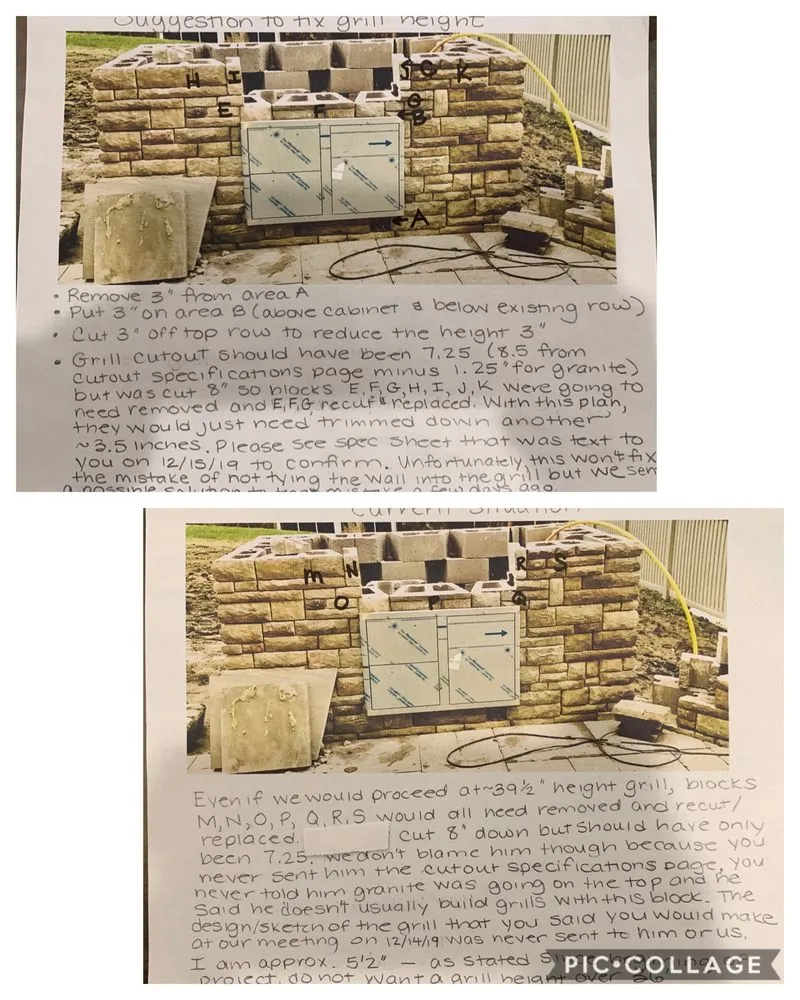 Suggestion to fix grill height
H I J O K
E F G
B
A
• Remove 3" from area A
• Put 3" on area B (above cabinet & below existing row)
• Cut 3" off top row to reduce the height 3"
• Grill cutout should have been 7.25 (8.5 from
cutout specifications page minus 1.25" for granite)
but was cut 8" so blocks E,F,G,H,I,J,K were going to
need removed and E,F,G recut & replaced. With this plan,
they would just need trimmed down another
~3.5 inches. Please see spec sheet that was text to
you on 12/15/19 to confirm. Unfortunately, this won't fix
the mistake of not tying the wall into the grill but we sent
a possible solution to a few days ago.
Current Situation
M N R S
O P Q
Even if we would proceed at ~39 1/2" height grill, blocks
M, N, O, P, Q, R, S would all need removed and recut/
replaced. cut 8" down but should have only
been 7.25. We don't blame him though because you
never sent him the cutout specifications page, you
never told him granite was going on the top and he
said he doesn't usually build grills with this block. The
design/sketch of the grill that you said you would make
at our meeting on 12/14/19 was never sent to him or us.
I am approx. 5'2" — as stated since beginning of
project, do not want a grill height over 36"
PIC•COLLAGE